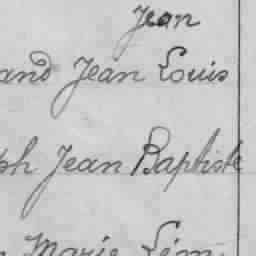 Jean
and Jean Louis
ph Jean Baptiste
Marie Lém